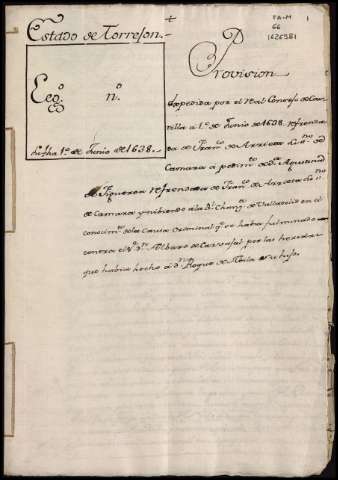 +
FA-M
66
1626981
1
Estado de Torrejon.-
Leg.º n.º
su fha 1.º de Junio de 1638.-
Provision
Expedida por el Real Consejo de Cas
tilla a 1.º de Junio de 1638. refrenda
da de Fran.co de Arrieta es.no de
Camara a pedim.to de D.n Agustin
de Figueroa refrendada de Fran.co de Arrieta es.no
de Camara y nibiendo a la R.l Chan.ª de Valladolid en el
conocim.to de la Causa Criminal q.e se habia fulminado
contra el D.n Albaro de Carvajal por las heridas
que habia hecho a D.n Roque de su hijo